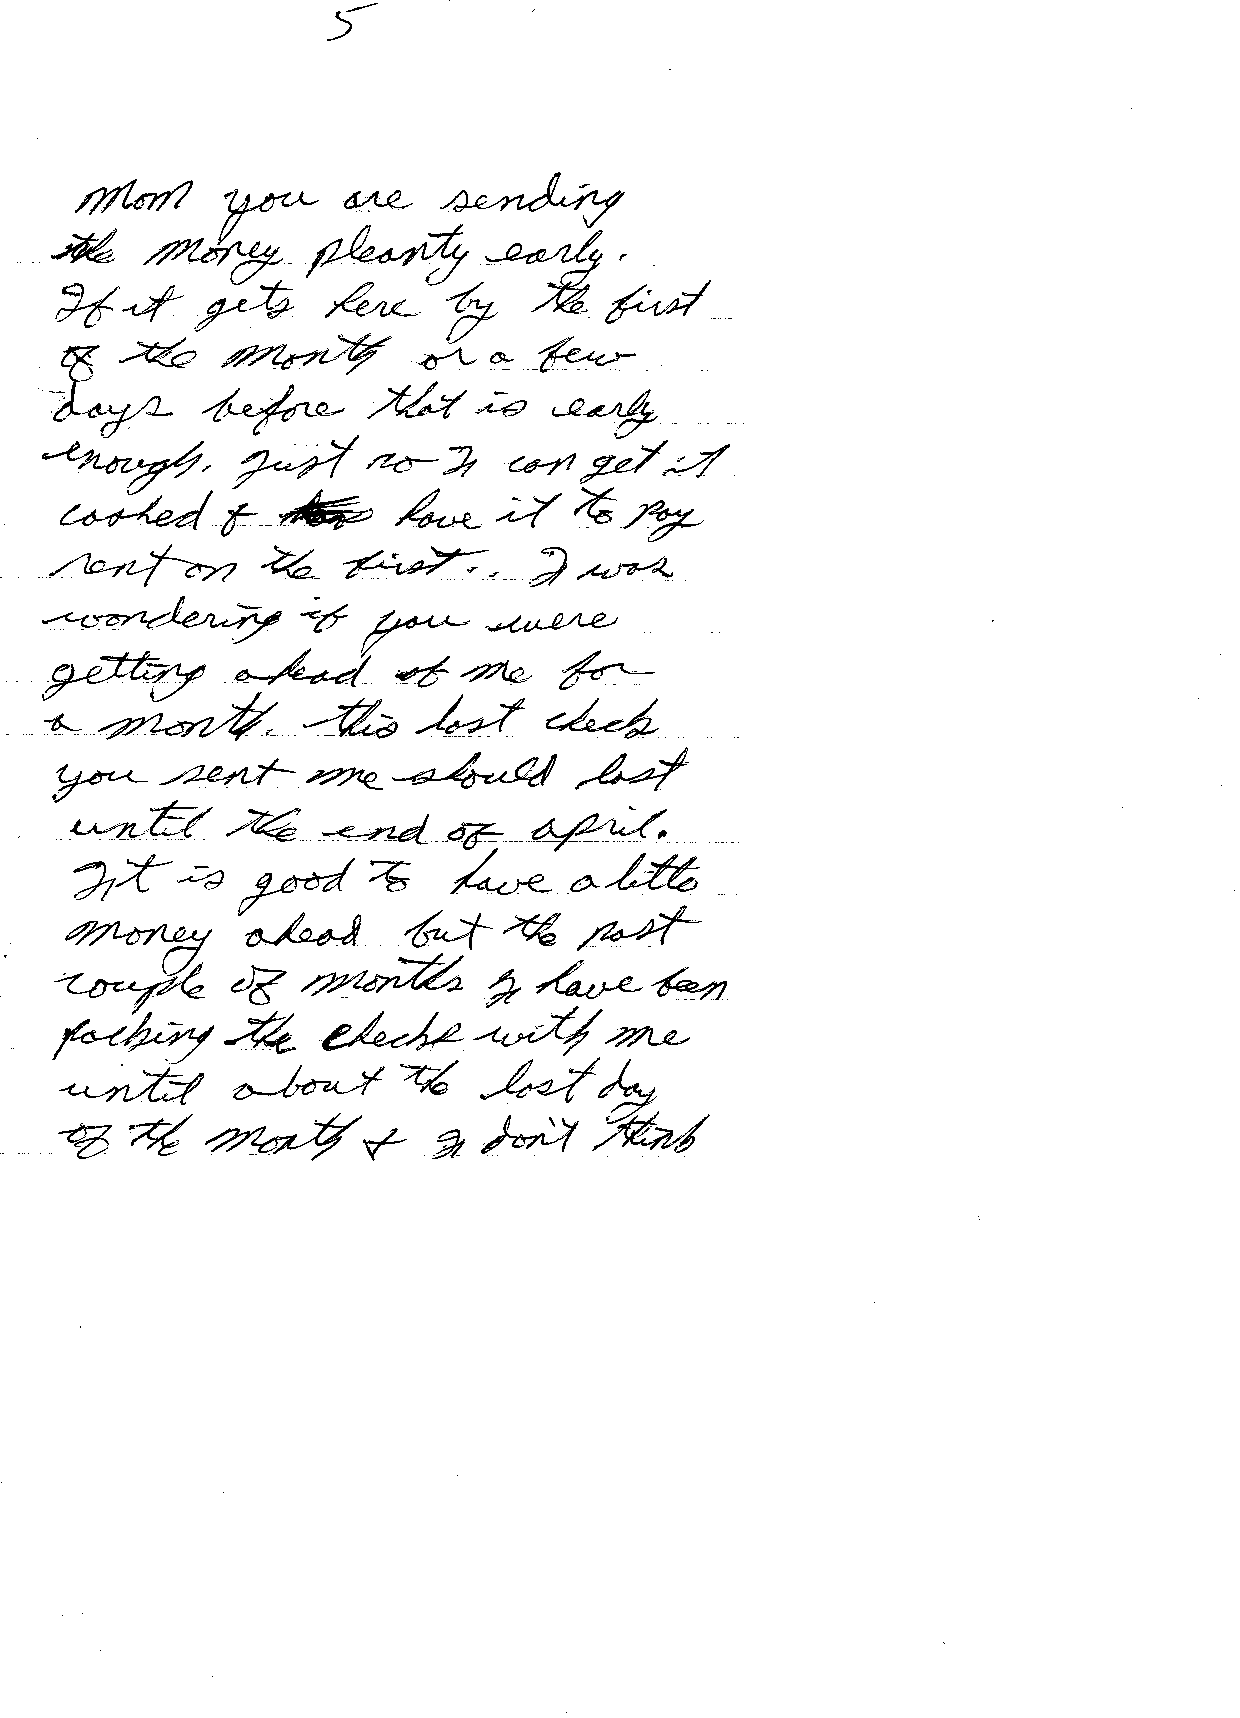 5
Mom you are sending
the money pleanty early.
If it gets here by the first
of the month or a few
days before that is early
enough. Just so I can get it
cashed & have it to pay
rent on the first.. I was
wondering if you were
getting ahead of me for
a month. This last check
you sent me should last
until the end of april.
It is good to have a little
money ahead but the past
couple of months I have been
packing the checks with me
until about the last day
of the month & I don't think